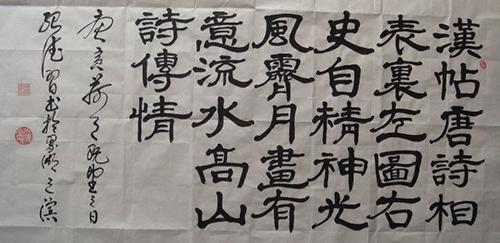 漢帖唐詩相
表裏左圖右
史自精神光
風霽月畫有
意流水高山
詩傳情
庚寅荷月既望之日
習書於湖之濱